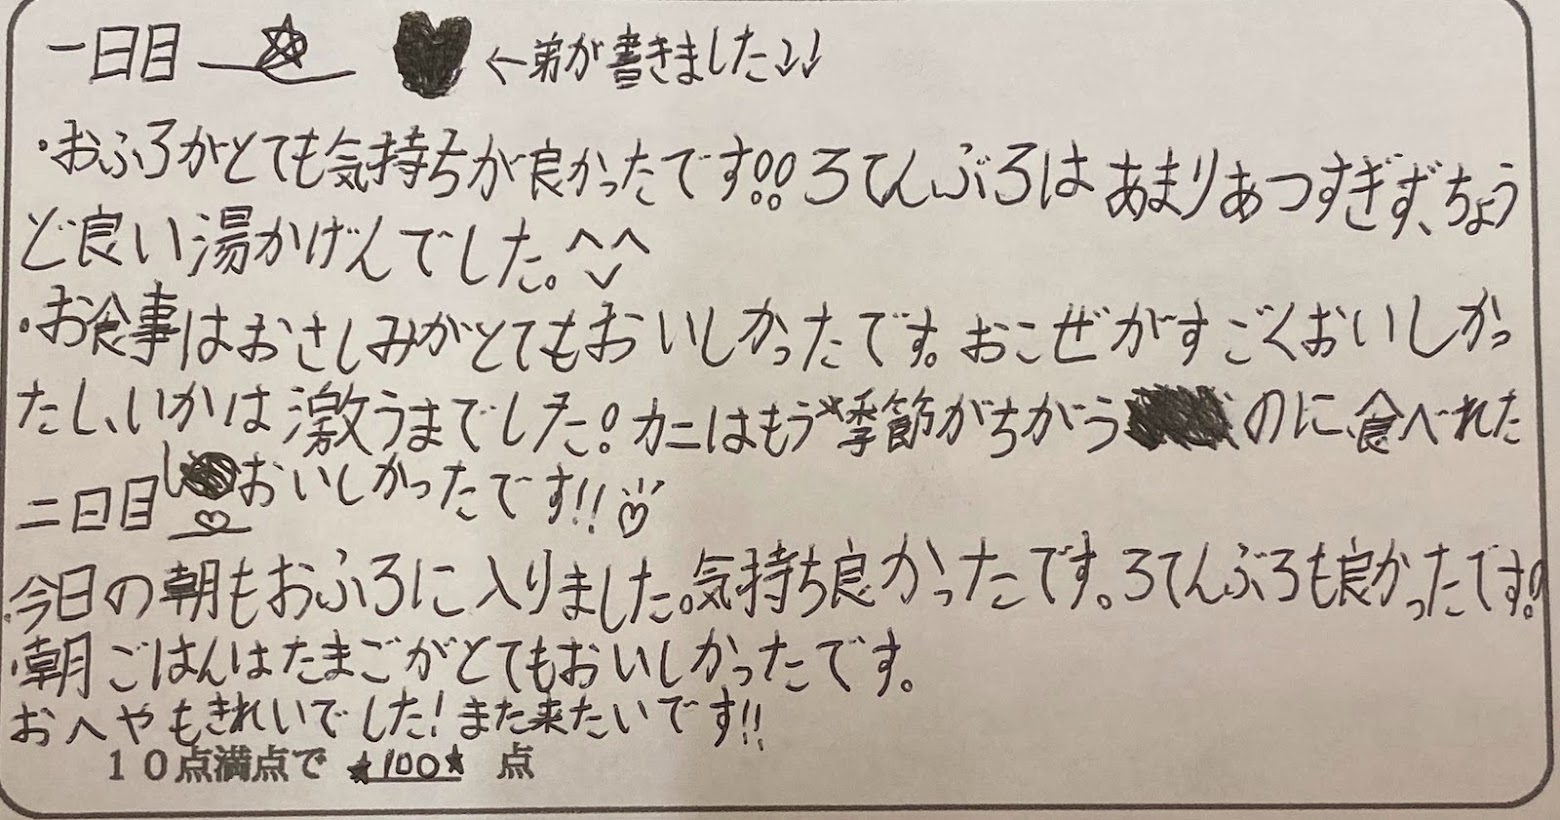 一日目 ☆ ♥ ←弟が書きました↓↓
・おふろがとても気持ちが良かったです!!ろてんぶろはあまりあつすぎず、ちょう
ど良い湯かげんでした。^^
・お食事はおさしみがとてもおいしかったです。おこぜがすごくおいしかっ
たし、いかは激うまでした!カニはもう季節がちがうのに食べれた
し おいしかったです!!
二日目 ♡
今日の朝もおふろに入りました。気持ち良かったです。ろてんぶろも良かったです!
・朝ごはんはたまごがとてもおいしかったです。
おへやもきれいでした!また来たいです!!
10点満点で ★100★ 点